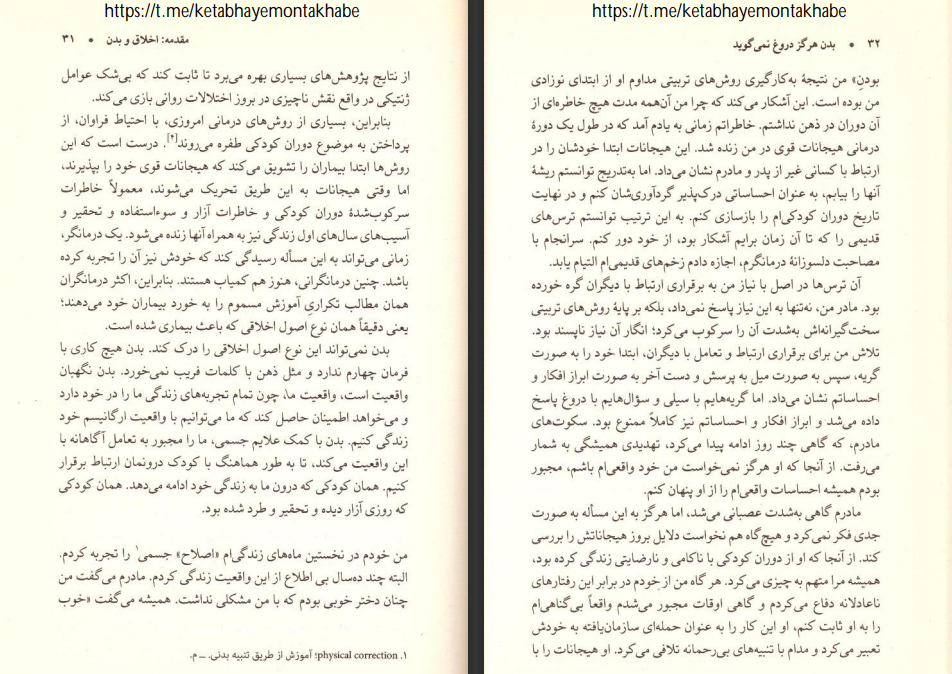 https://t.me/ketabhayemontakhabe
مقدمه: اخلاق و بدن • ۳۱
از نتایج پژوهش‌های بسیاری بهره می‌برد تا ثابت کند که بی‌شک عوامل
ژنتیکی در واقع نقش ناچیزی در بروز اختلالات روانی بازی می‌کند.
بنابراین، بسیاری از روش‌های درمانی امروزی، با احتیاط فراوان، از
پرداختن به موضوع دوران کودکی طفره می‌روند[۴]. درست است که این
روش‌ها ابتدا بیماران را تشویق می‌کند که هیجانات قوی خود را بپذیرند،
اما وقتی هیجانات به این طریق تحریک می‌شوند، معمولاً خاطرات
سرکوب‌شدهٔ دوران کودکی و خاطرات آزار و سوءاستفاده و تحقیر و
آسیب‌های سال‌های اول زندگی نیز به همراه آنها زنده می‌شود. یک درمانگر،
زمانی می‌تواند به این مسأله رسیدگی کند که خودش نیز آن را تجربه کرده
باشد. چنین درمانگرانی، هنوز هم کمیاب هستند. بنابراین، اکثر درمانگران
همان مطالب تکراریِ آموزش مسموم را به خورد بیماران خود می‌دهند؛
یعنی دقیقاً همان نوع اصول اخلاقی که باعث بیماری شده است.
بدن نمی‌تواند این نوع اصول اخلاقی را درک کند. بدن هیچ کاری با
فرمان چهارم ندارد و مثل ذهن با کلمات فریب نمی‌خورد. بدن نگهبان
واقعیت است، واقعیت ما، چون تمام تجربه‌های زندگی ما را در خود دارد
و می‌خواهد اطمینان حاصل کند که ما می‌توانیم با واقعیت ارگانیسم خود
زندگی کنیم. بدن با کمک علایم جسمی، ما را مجبور به تعامل آگاهانه با
این واقعیت می‌کند، تا به طور هماهنگ با کودک درونمان ارتباط برقرار
کنیم. همان کودکی که درون ما به زندگی خود ادامه می‌دهد. همان کودکی
که روزی آزار دیده و تحقیر و طرد شده بود.
من خودم در نخستین ماه‌های زندگی‌ام «اصلاح» جسمی۱ را تجربه کردم.
البته چند ده‌سال بی اطلاع از این واقعیت زندگی کردم. مادرم می‌گفت من
چنان دختر خوبی بودم که با من مشکلی نداشت. همیشه می‌گفت «خوب
۱. physical correction؛ آموزش از طریق تنبیه بدنی. ــ م.
https://t.me/ketabhayemontakhabe
۳۲ • بدن هرگز دروغ نمی‌گوید
بودنِ» من نتیجهٔ به‌کارگیری روش‌های تربیتی مداوم او از ابتدای نوزادی
من بوده است. این آشکار می‌کند که چرا من آن‌همه مدت هیچ خاطره‌ای از
آن دوران در ذهن نداشتم. خاطراتم زمانی به یادم آمد که در طول یک دورهٔ
درمانی هیجانات قوی در من زنده شد. این هیجانات ابتدا خودشان را در
ارتباط با کسانی غیر از پدر و مادرم نشان می‌داد. اما به‌تدریج توانستم ریشهٔ
آنها را بیابم، به عنوان احساساتی درک‌پذیر گردآوری‌شان کنم و در نهایت
تاریخ دوران کودکی‌ام را بازسازی کنم. به این ترتیب توانستم ترس‌های
قدیمی را که تا آن زمان برایم آشکار بود، از خود دور کنم. سرانجام با
مصاحبت دلسوزانهٔ درمانگرم، اجازه دادم زخم‌های قدیمی‌ام التیام یابد.
آن ترس‌ها در اصل با نیاز من به برقراری ارتباط با دیگران گره خورده
بود. مادر من، نه‌تنها به این نیاز پاسخ نمی‌داد، بلکه بر پایهٔ روش‌های تربیتی
سخت‌گیرانه‌اش به‌شدت آن را سرکوب می‌کرد؛ انگار آن نیاز ناپسند بود.
تلاش من برای برقراری ارتباط و تعامل با دیگران، ابتدا خود را به صورت
گریه، سپس به صورت میل به پرسش و دست آخر به صورت ابراز افکار و
احساساتم نشان می‌داد. اما گریه‌هایم با سیلی و سؤال‌هایم با دروغ پاسخ
داده می‌شد و ابراز افکار و احساساتم نیز کاملاً ممنوع بود. سکوت‌های
مادرم، که گاهی چند روز ادامه پیدا می‌کرد، تهدیدی همیشگی به شمار
می‌رفت. از آنجا که او هرگز نمی‌خواست من خود واقعی‌ام باشم، مجبور
بودم همیشه احساسات واقعی‌ام را از او پنهان کنم.
مادرم گاهی به‌شدت عصبانی می‌شد، اما هرگز به این مسأله به صورت
جدی فکر نمی‌کرد و هیچ‌گاه هم نخواست دلایل بروز هیجاناتش را بررسی
کند. از آنجا که او از دوران کودکی با ناکامی و نارضایتی زندگی کرده بود،
همیشه مرا متهم به چیزی می‌کرد. هر گاه من از خودم در برابر این رفتارهای
ناعادلانه دفاع می‌کردم و گاهی اوقات مجبور می‌شدم واقعاً بی‌گناهی‌ام
را به او ثابت کنم، او این کار را به عنوان حمله‌ای سازمان‌یافته به خودش
تعبیر می‌کرد و مدام با تنبیه‌های بی‌رحمانه تلافی می‌کرد. او هیجانات را با